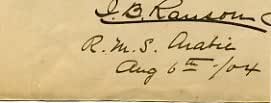 J. B. Ransom
R. M. S. Arabic
Aug 6th /04